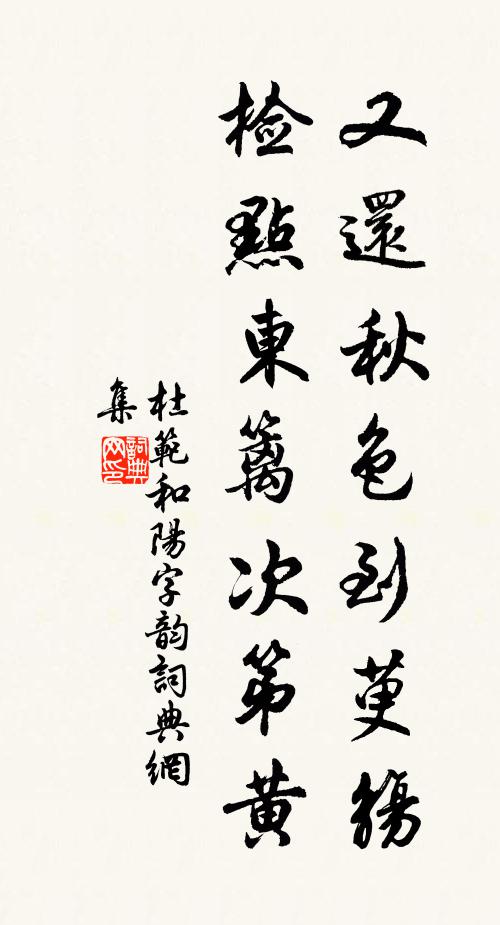 又還秋色到萸觴
檢點東籬次第黃
杜範和陽字韵詞典網
集
詞典网印